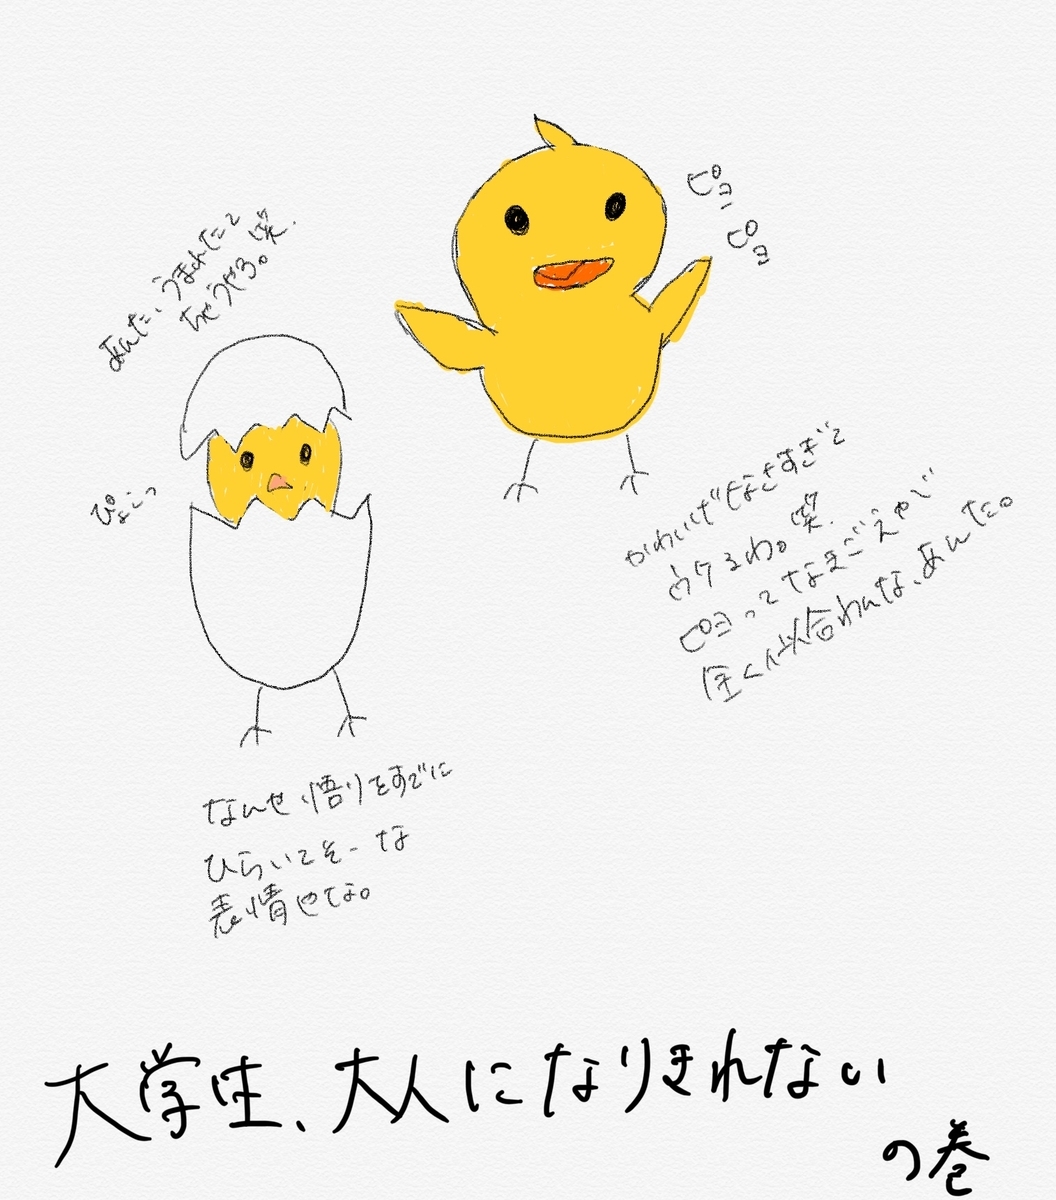 ピヨ
ピヨ
あんた、うまれたて
ちゃうやろ。笑.
ぴょこっ
かわいげなさすぎて
ウケるわ。笑.
ピヨってなまごえやで
全く似合わんな、あんた。
なんせ悟りをすでに
ひらいてそーな
表情やな。
大学生、大人になりきれない
の巻